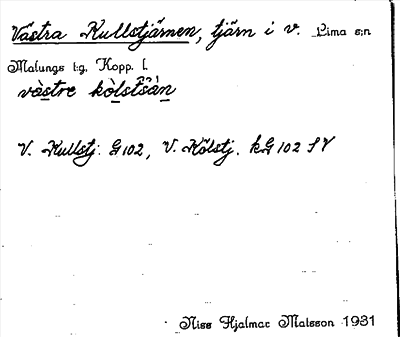 Västra Kullstjärnen, tjärn i v. Lima s:n
Malungs t:g, Kopp. l.
västre kòlstsä̀n
V. Kullstj. G 102, V. Kölstj. kG 102 SV
Niss Hjalmar Matsson 1931